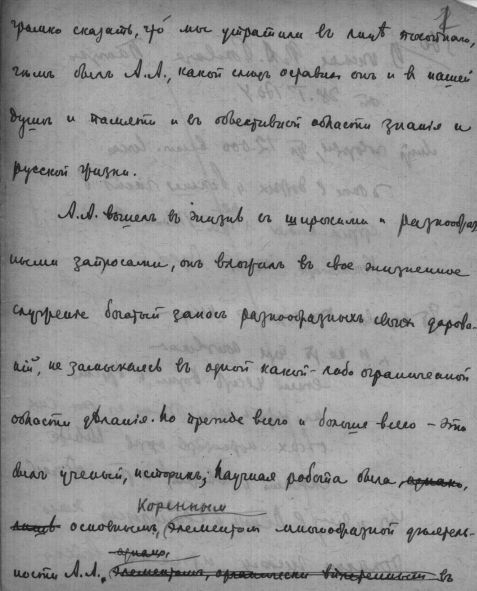 1
громко сказать, что мы утратили въ лицѣ
чѣмъ былъ А.А., какой слѣдъ оставилъ онъ и в нашей
душѣ и памяти и въ объективной области знанія и
русской жизни.
А.А. вышелъ въ жизнь съ широкими и разнообраз
ными запросами, онъ вложилъ въ свое жизненное
служеніе богатый запасъ разнообразныхъ своихъ дарова-
ній, не замыкаясь въ одной какой-либо ограниченной
области дѣланія. Но прежде всего и больше всего – это
былъ ученый, историкъ; Научная работа была, однако,
Кореннымъ
лишь основнымъ, элементом многообразной дѣятель-
однако,
ности А.А., элементомъ, органически въ